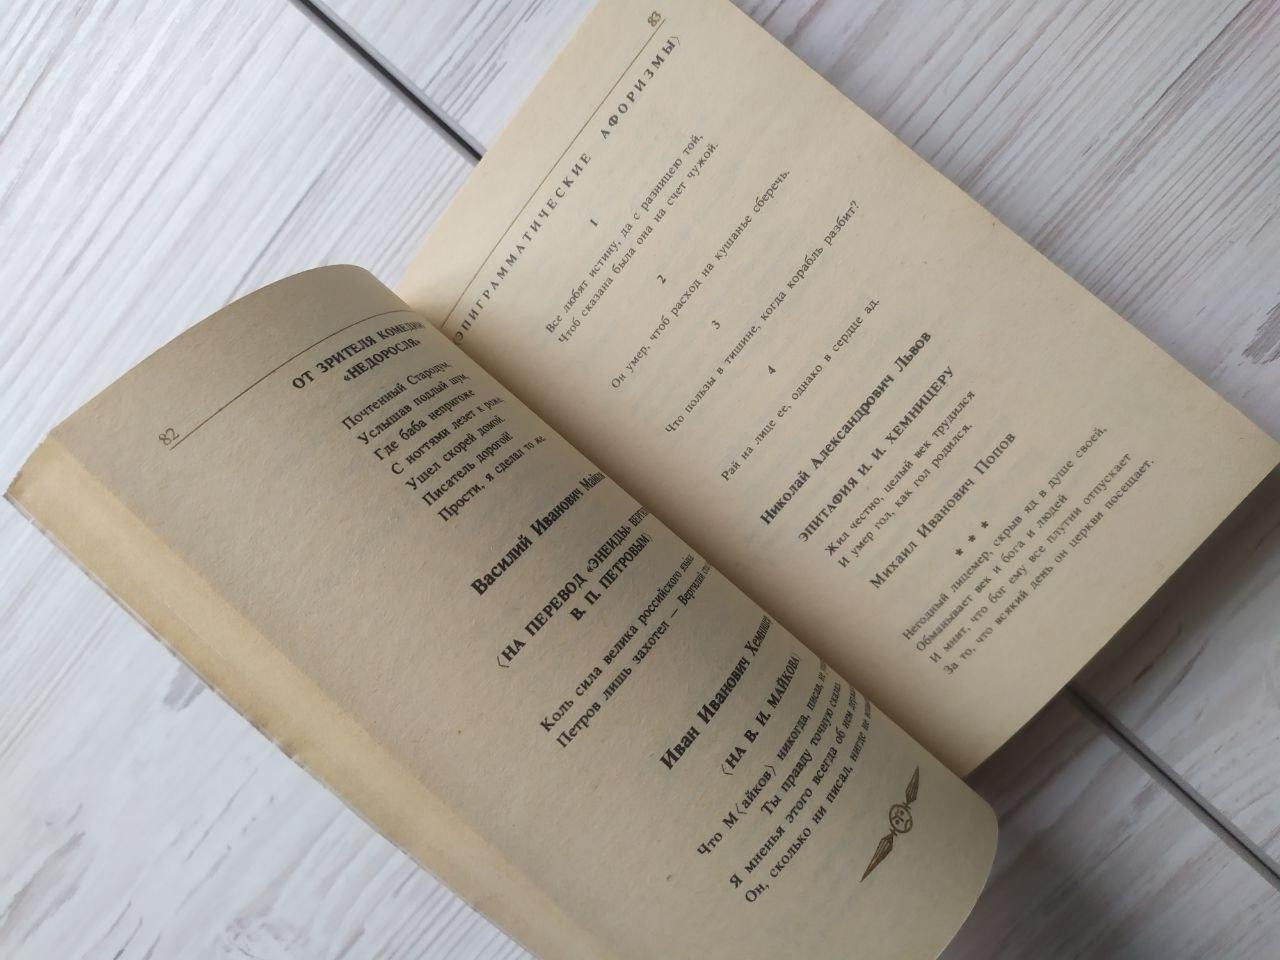 82
ОТ ЗРИТЕЛЯ КОМЕДИИ
«НЕДОРОСЛЯ»
Почтенный Стародум,
Услышав подлый шум,
Где баба непригоже
С ногтями лезет к роже,
Ушел скорей домой.
Писатель дорогой!
Прости, я сделал то же.
Василий Иванович
⟨НА ПЕРЕВОД «ЭНЕИДЫ»
В. П. ПЕТРОВЫМ⟩
Коль сила велика российского языка
Петров лишь захотел — Вергилий
Иван Иванович
⟨НА В. И. МАЙКОВА⟩
Что М⟨айков⟩ никогда, писав, не
Ты правду точную сказал
Я мненья этого всегда об нем
Он, сколько ни писал, нигде не
83
⟨ЭПИГРАММАТИЧЕСКИЕ АФОРИЗМЫ⟩
1
Все любят истину, да с разницею той,
Чтоб сказана была она на счет чужой.
2
Он умер, чтоб расход на кушанье сберечь.
3
Что пользы в тишине, когда корабль разбит?
4
Рай на лице ее, однако в сердце ад.
Николай Александрович Львов
ЭПИТАФИЯ И. И. ХЕМНИЦЕРУ
Жил честно, целый век трудился
И умер гол, как гол родился.
Михаил Иванович Попов
* * *
Негодный лицемер, скрыв яд в душе своей,
Обманывает век и бога и людей
И мнит, что бог ему все плутни отпускает
За то, что всякий день он церкви посещает.